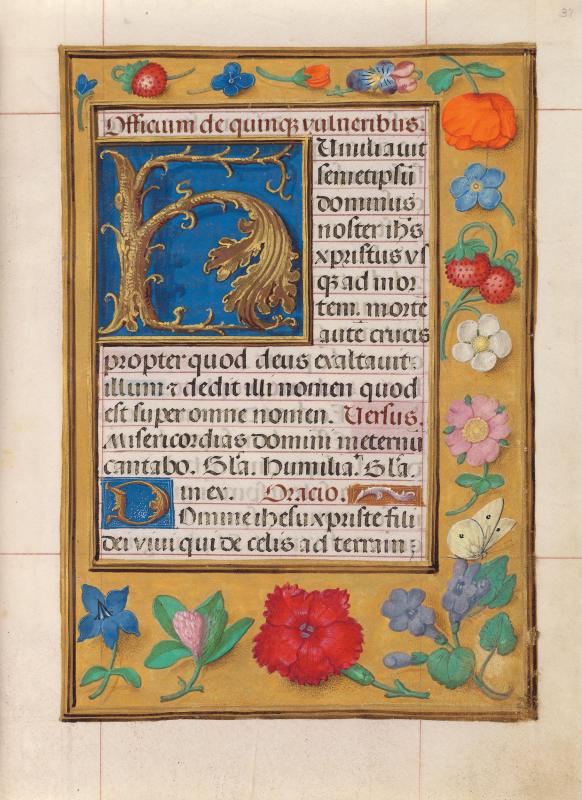 37
Officium de quinq; vulneribus.
Humiliauit
semetipsū
dominus
noster ihs
xpristus vs
q; ad mor
tem. mortē
autē crucis
propter quod deus exaltauit
illum ⁊ dedit illi nomen quod
est super omne nomen. Versus.
Misericordias domini in eternū
cantabo. Gla. Humilia. Gla.
in ex. Oracio.
Domine ihesu xpriste fili
dei viui qui de celis ad terram